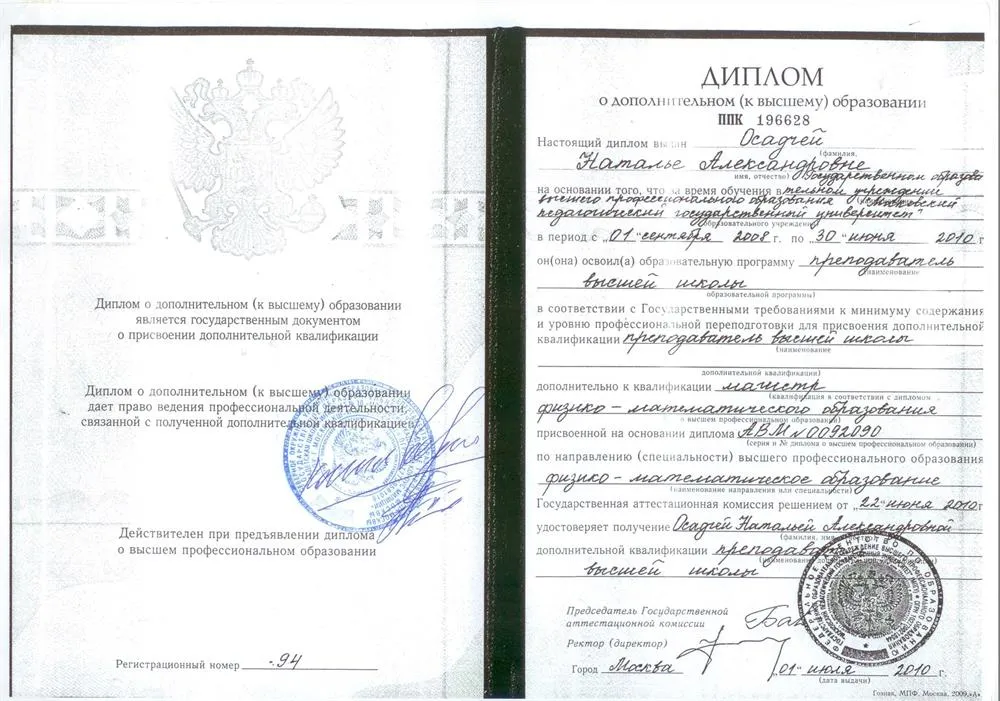 Диплом о дополнительном (к высшему) образовании
является государственным документом
о присвоении дополнительной квалификации
Диплом о дополнительном (к высшему) образовании
дает право ведения профессиональной деятельности,
связанной с полученной дополнительной квалификацией
Действителен при предъявлении диплома
о высшем профессиональном образовании
Регистрационный номер -94
ДИПЛОМ
о дополнительном (к высшему) образовании
ППК 196628
Настоящий диплом выдан Осадчей
(фамилия,
Наталье Александровне
имя, отчество)
Государственном образова
на основании того, что за время обучения в тельном учреждении
высшего профессионального образования "Московский
педагогический государственный университет"
образовательного учреждения)
в период с „01“ сентября 2008 г. по „30“ июня 2010 г
он(она) освоил(а) образовательную программу преподаватель
(наименование
высшей школы
образовательной программы)
в соответствии с Государственными требованиями к минимуму содержания
и уровню профессиональной переподготовки для присвоения дополнительной
квалификации преподаватель высшей школы
(наименование
дополнительной квалификации)
дополнительно к квалификации магистр
(квалификация в соответствии с дипломом
физико-математического образования
о высшем профессиональном образовании)
присвоенной на основании диплома АВМ №0092090
(серия и № диплома о высшем профессиональном образовании)
по направлению (специальности) высшего профессионального образования
физико-математическое образование
(наименование направления или специальности)
Государственная аттестационная комиссия решением от „22“ июня 2010 г
удостоверяет получение Осадчей Натальей Александровной
(фамилия, имя
дополнительной квалификации преподава
(наименование до
высшей школы
Председатель Государственной
аттестационной комиссии
Ректор (директор)
Город Москва „01“ июля 2010 г
(дата выдачи)
Гознак, МПФ. Москва. 2009. «А».